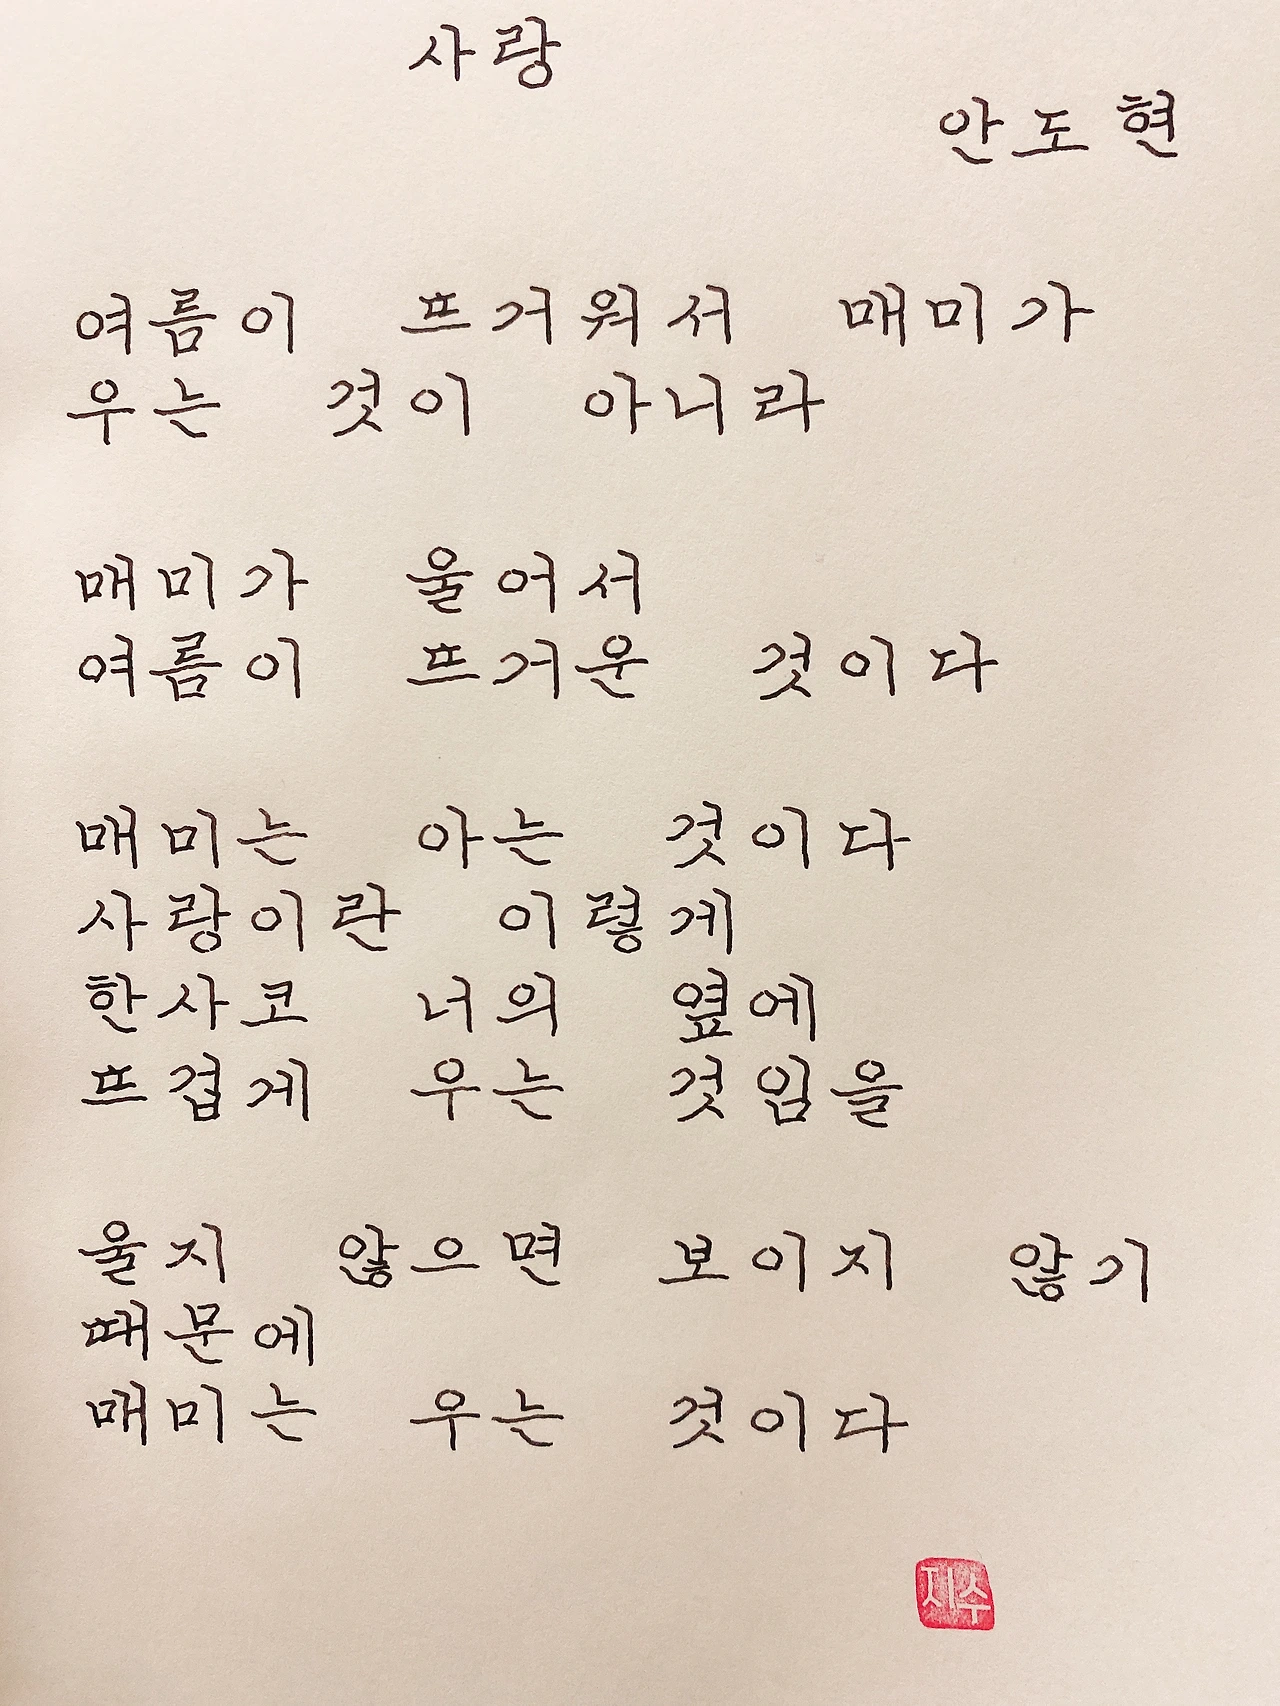 사랑
안도현
여름이 뜨거워서 매미가
우는 것이 아니라
매미가 울어서
여름이 뜨거운 것이다
매미는 아는 것이다
사랑이란 이렇게
한사코 너의 옆에
뜨겁게 우는 것임을
울지 않으면 보이지 않기
때문에
매미는 우는 것이다
지수